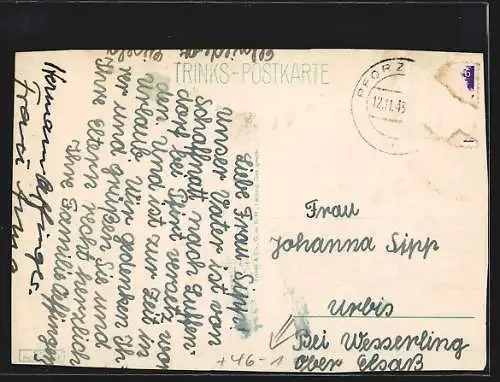 TRINKS-POSTKARTE
PFORZ
12.11.43
Liebe Frau Sipp!
Unser Vater ist von
Schafmatt nach
dorf bei Pfirt versetz wor
den und ist zur Zeit in
Urlaub. Wir gedenken Ih
rer und grüßen Sie und
Ihre Eltern recht herzlich
Ihre Familie
Hermann
Frau
Frau
Johanna Sipp
Urbis
Bei Wesserling
Ober Elsaß
+46-1